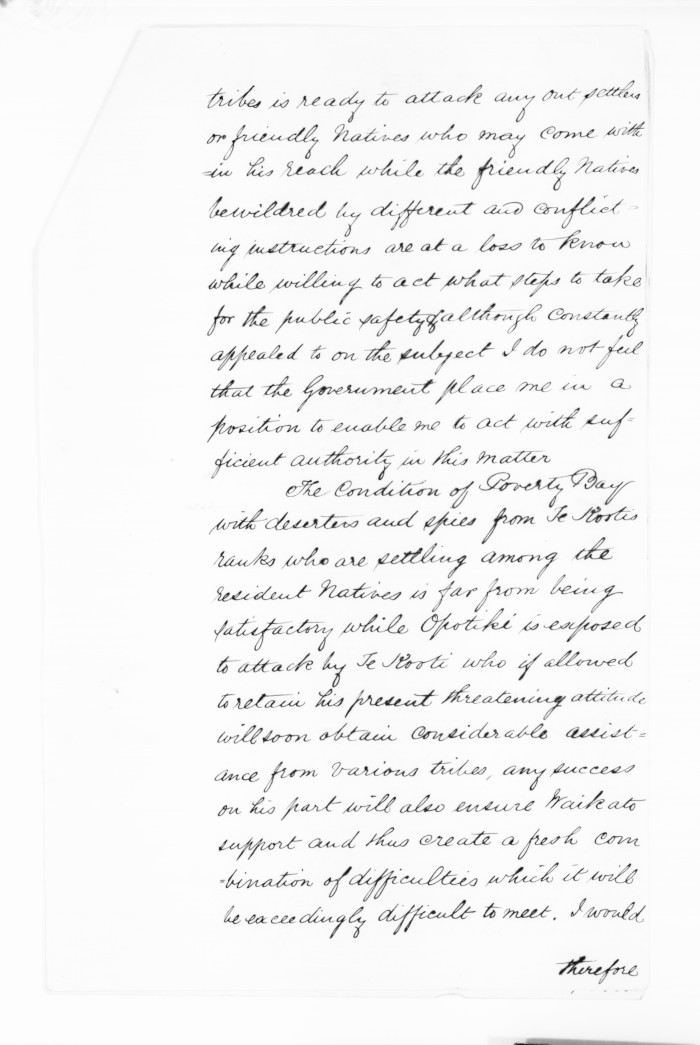 tribes is ready to attack any out settlers
or friendly Natives who may come with
=in his reach while the friendly Natives
bewildred by different and conflict=
ing instructions are at a loss to know
while willing to act what steps to take
for the public safety & although constantly
appealed to on the subject I do not feel
that the Government place me in a
position to enable me to act with suf=
ficient authority in this matter
The Condition of Poverty Bay
with deserters and spies from Te Kootis
ranks who are settling among the
resident Natives is far from being
satisfactory while Opotiki is exposed
to attack by Te Kooti who if allowed
to retain his present threatening attitude
will soon obtain considerable assist=
ance from various tribes, any success
on his part will also ensure Waikato
support and thus create a fresh com
=bination of difficulties which it will
be exceedingly difficult to meet. I would
therefore